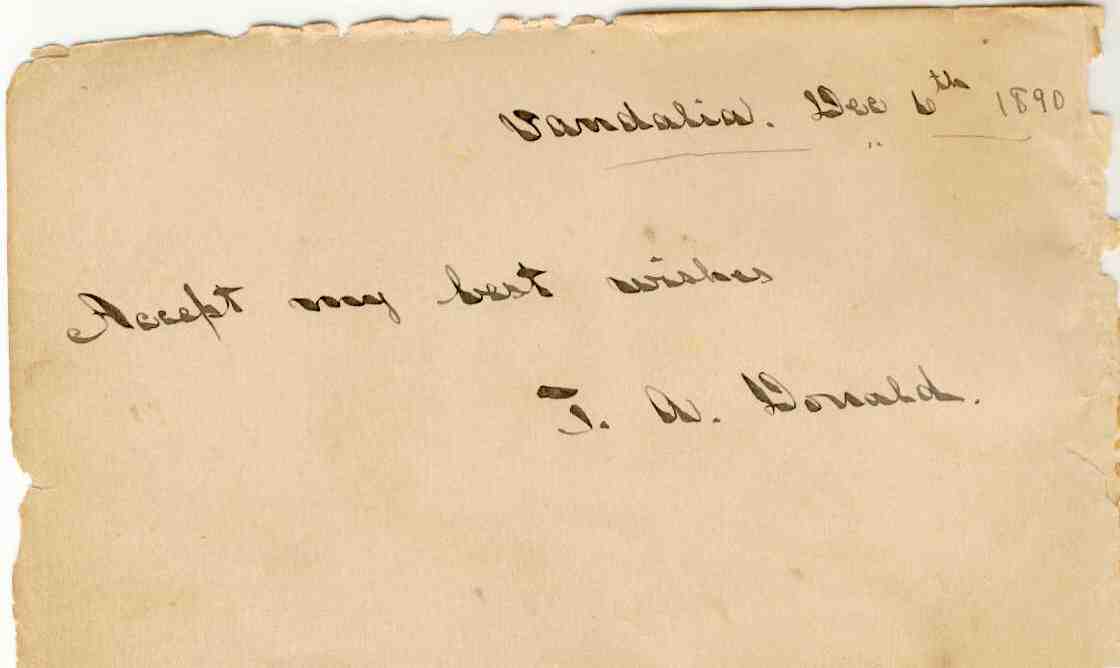 Vandalia. Dec 6th 1890
Accept my best wishes
T. A. Donald.